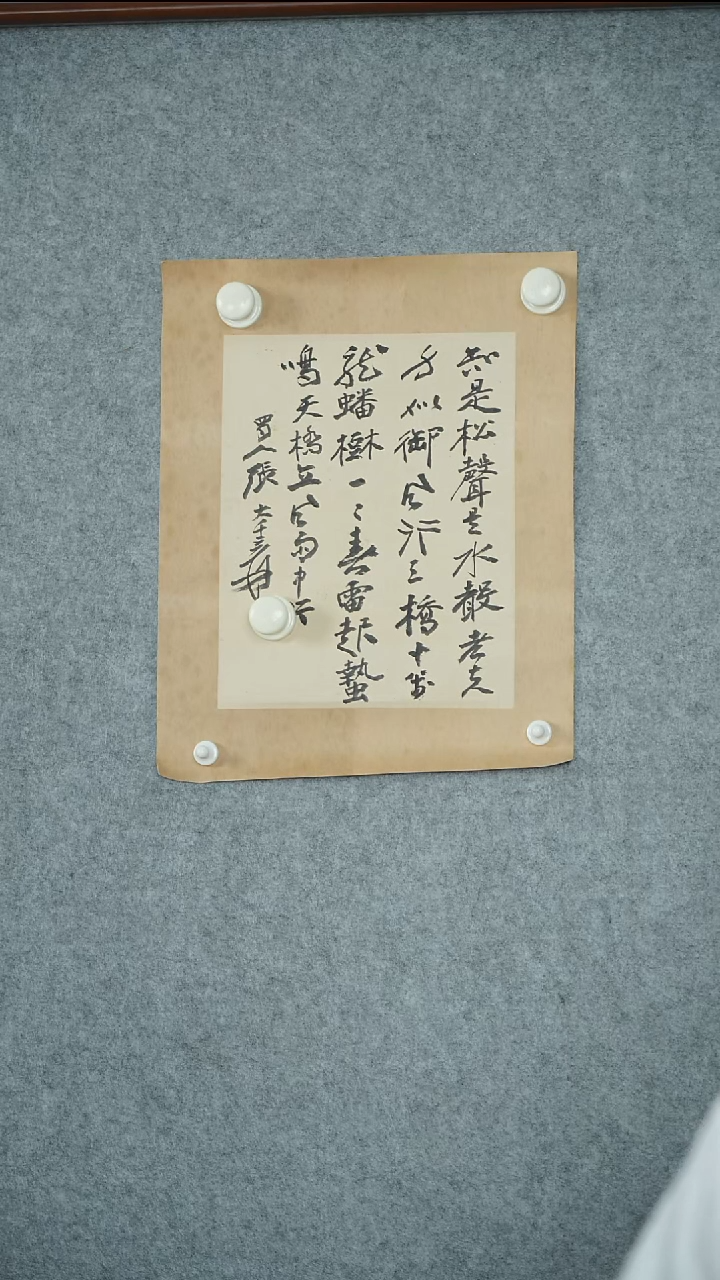 知是松聲是水聲老夫
方似御風行三橋十萬
龍蟠樹一〻春雷起蟄
鳴天橋立風雨中行
蜀人張大千爰